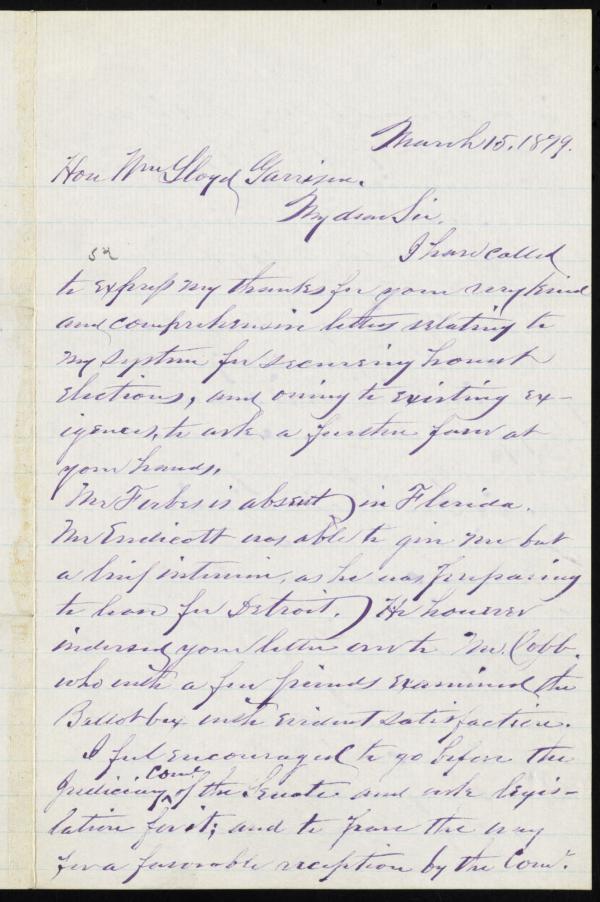 March 15, 1879.
Hon Wm Lloyd Garrison.
My dear Sir.
I have called
to express my thanks for your very kind
and comprehensive letter relating to
my system for secureing honest
Elections, and owing to existing ex-
igences, to ask a further favor at
your hands.
Mr Forbes is absent in Florida.
Mr Endicott was able to give me but
a brief interview, as he was preparing
to leave for Detroit. He however
indorsed your letter over to Mr. Cobb.
who with a few friends examined the
Ballot box with evident satisfaction.
I feel encouraged to go before the
Judiciary com. of the Senate and ask legis-
lation for it; and to pave the way
for a favorable reception by the Com.